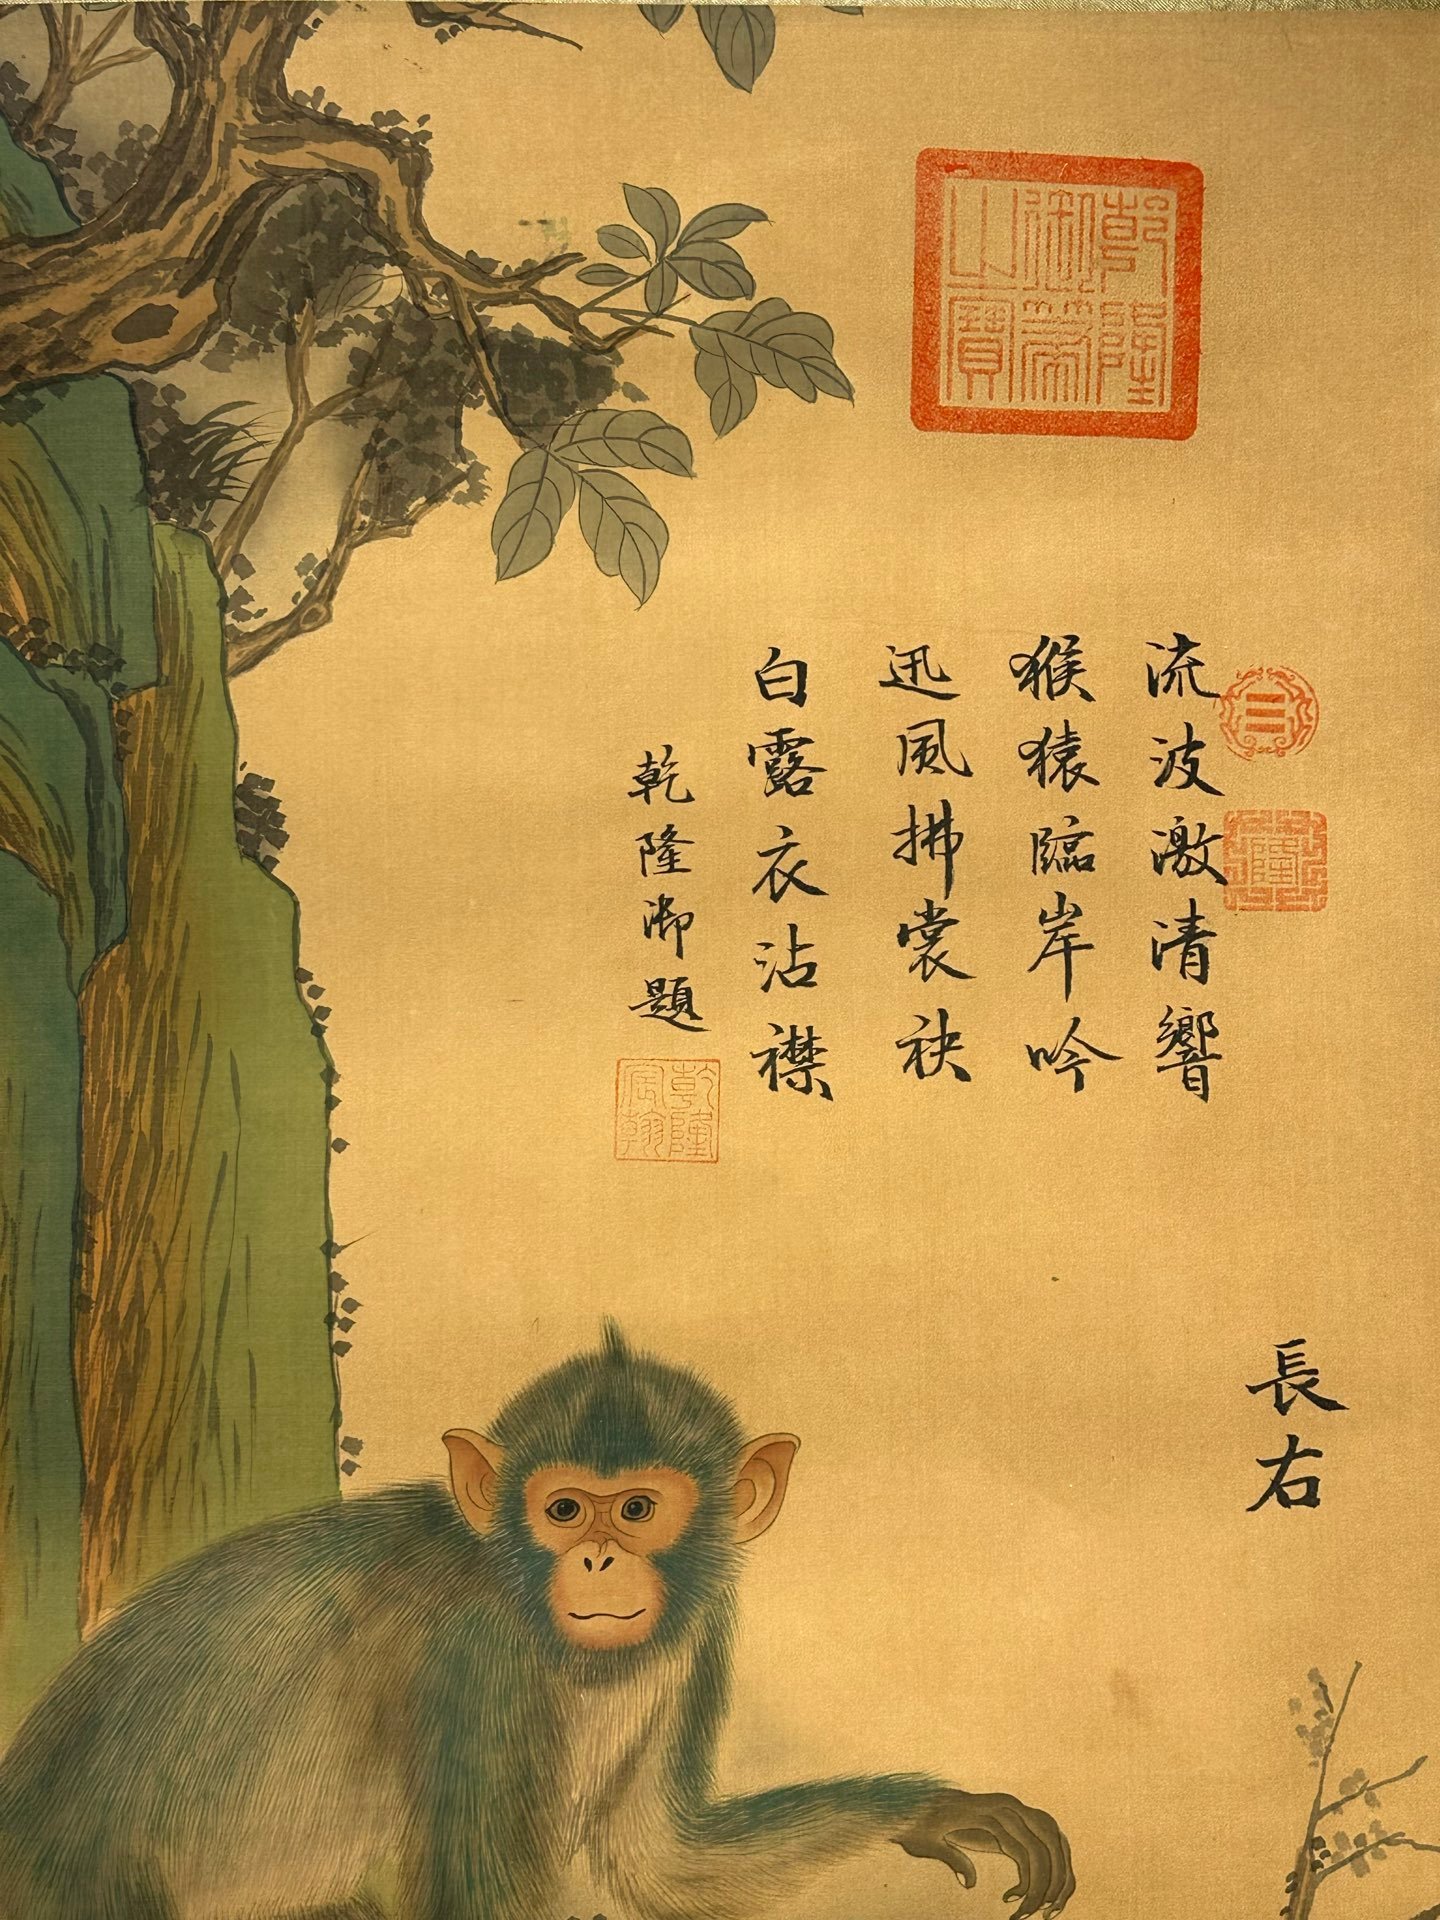 乾隆御筆之寶
三
隆
流波激清響
猴猿臨岸吟
迅風拂裳袂
白露衣沾襟
乾隆御題
乾隆宸翰
長右